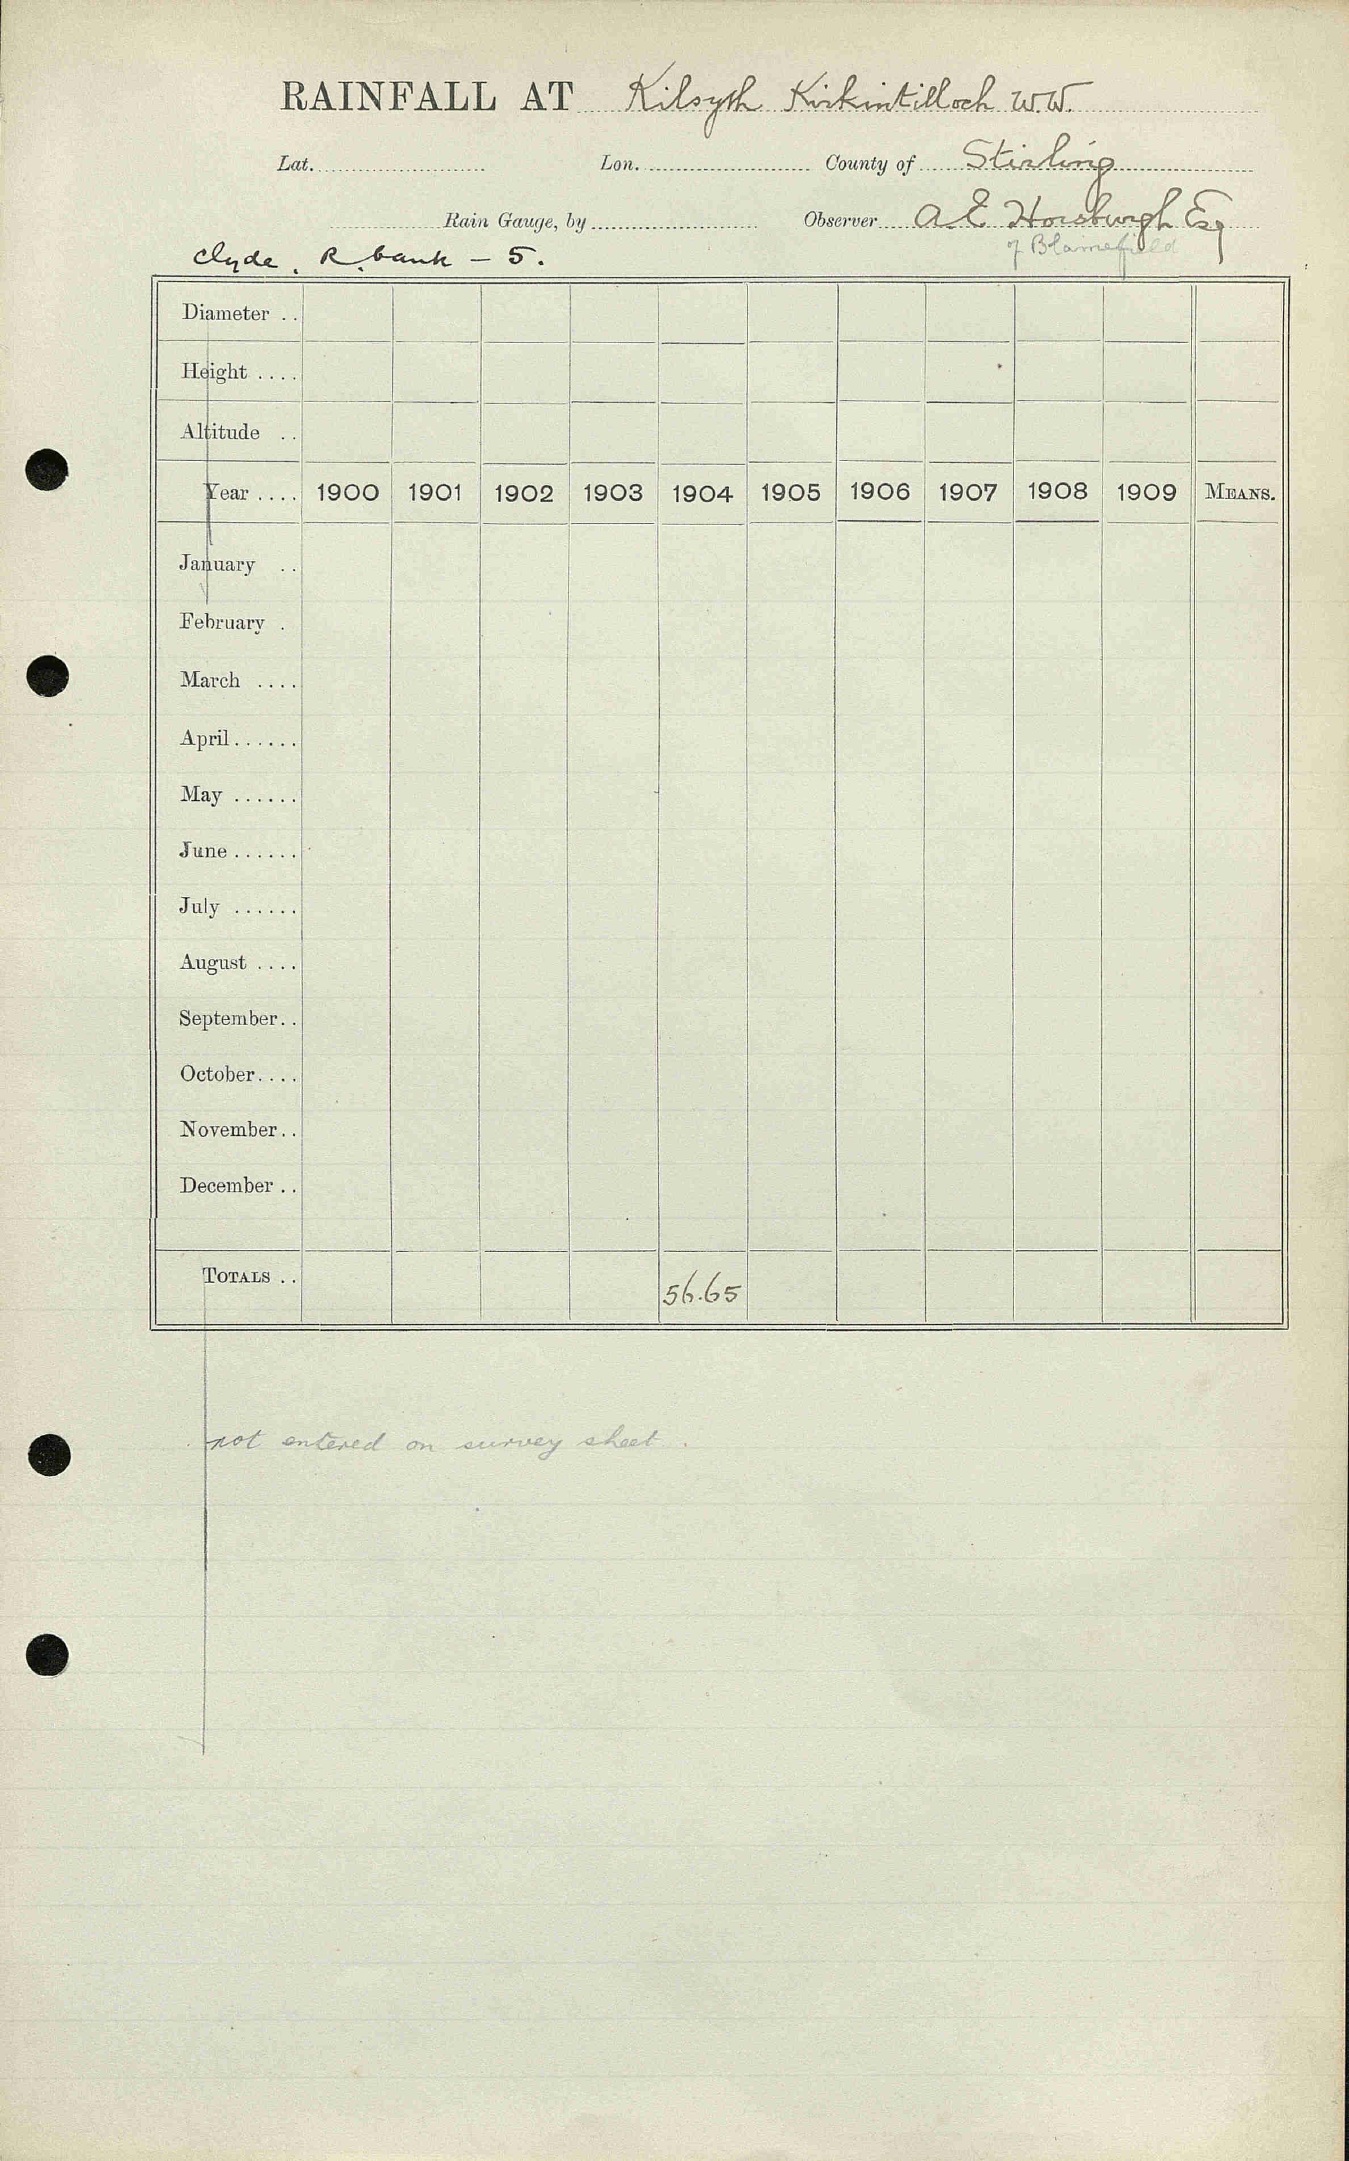 RAINFALL AT Kilsyth Kirkintilloch W.W.
Lat. Lon. County of Stirling
Rain Gauge, by Observer A. E Horsburgh Esq
of
Clyde. R. bank - 5.
Diameter ..
Height ....
Altitude ..
Year .... 1900 1901 1902 1903 1904 1905 1906 1907 1908 1909 MEANS.
January ..
February .
March ....
April ......
May ......
June ......
July ......
August ....
September..
October....
November..
December ..
TOTALS .. 56.65
not entered on survey sheet.